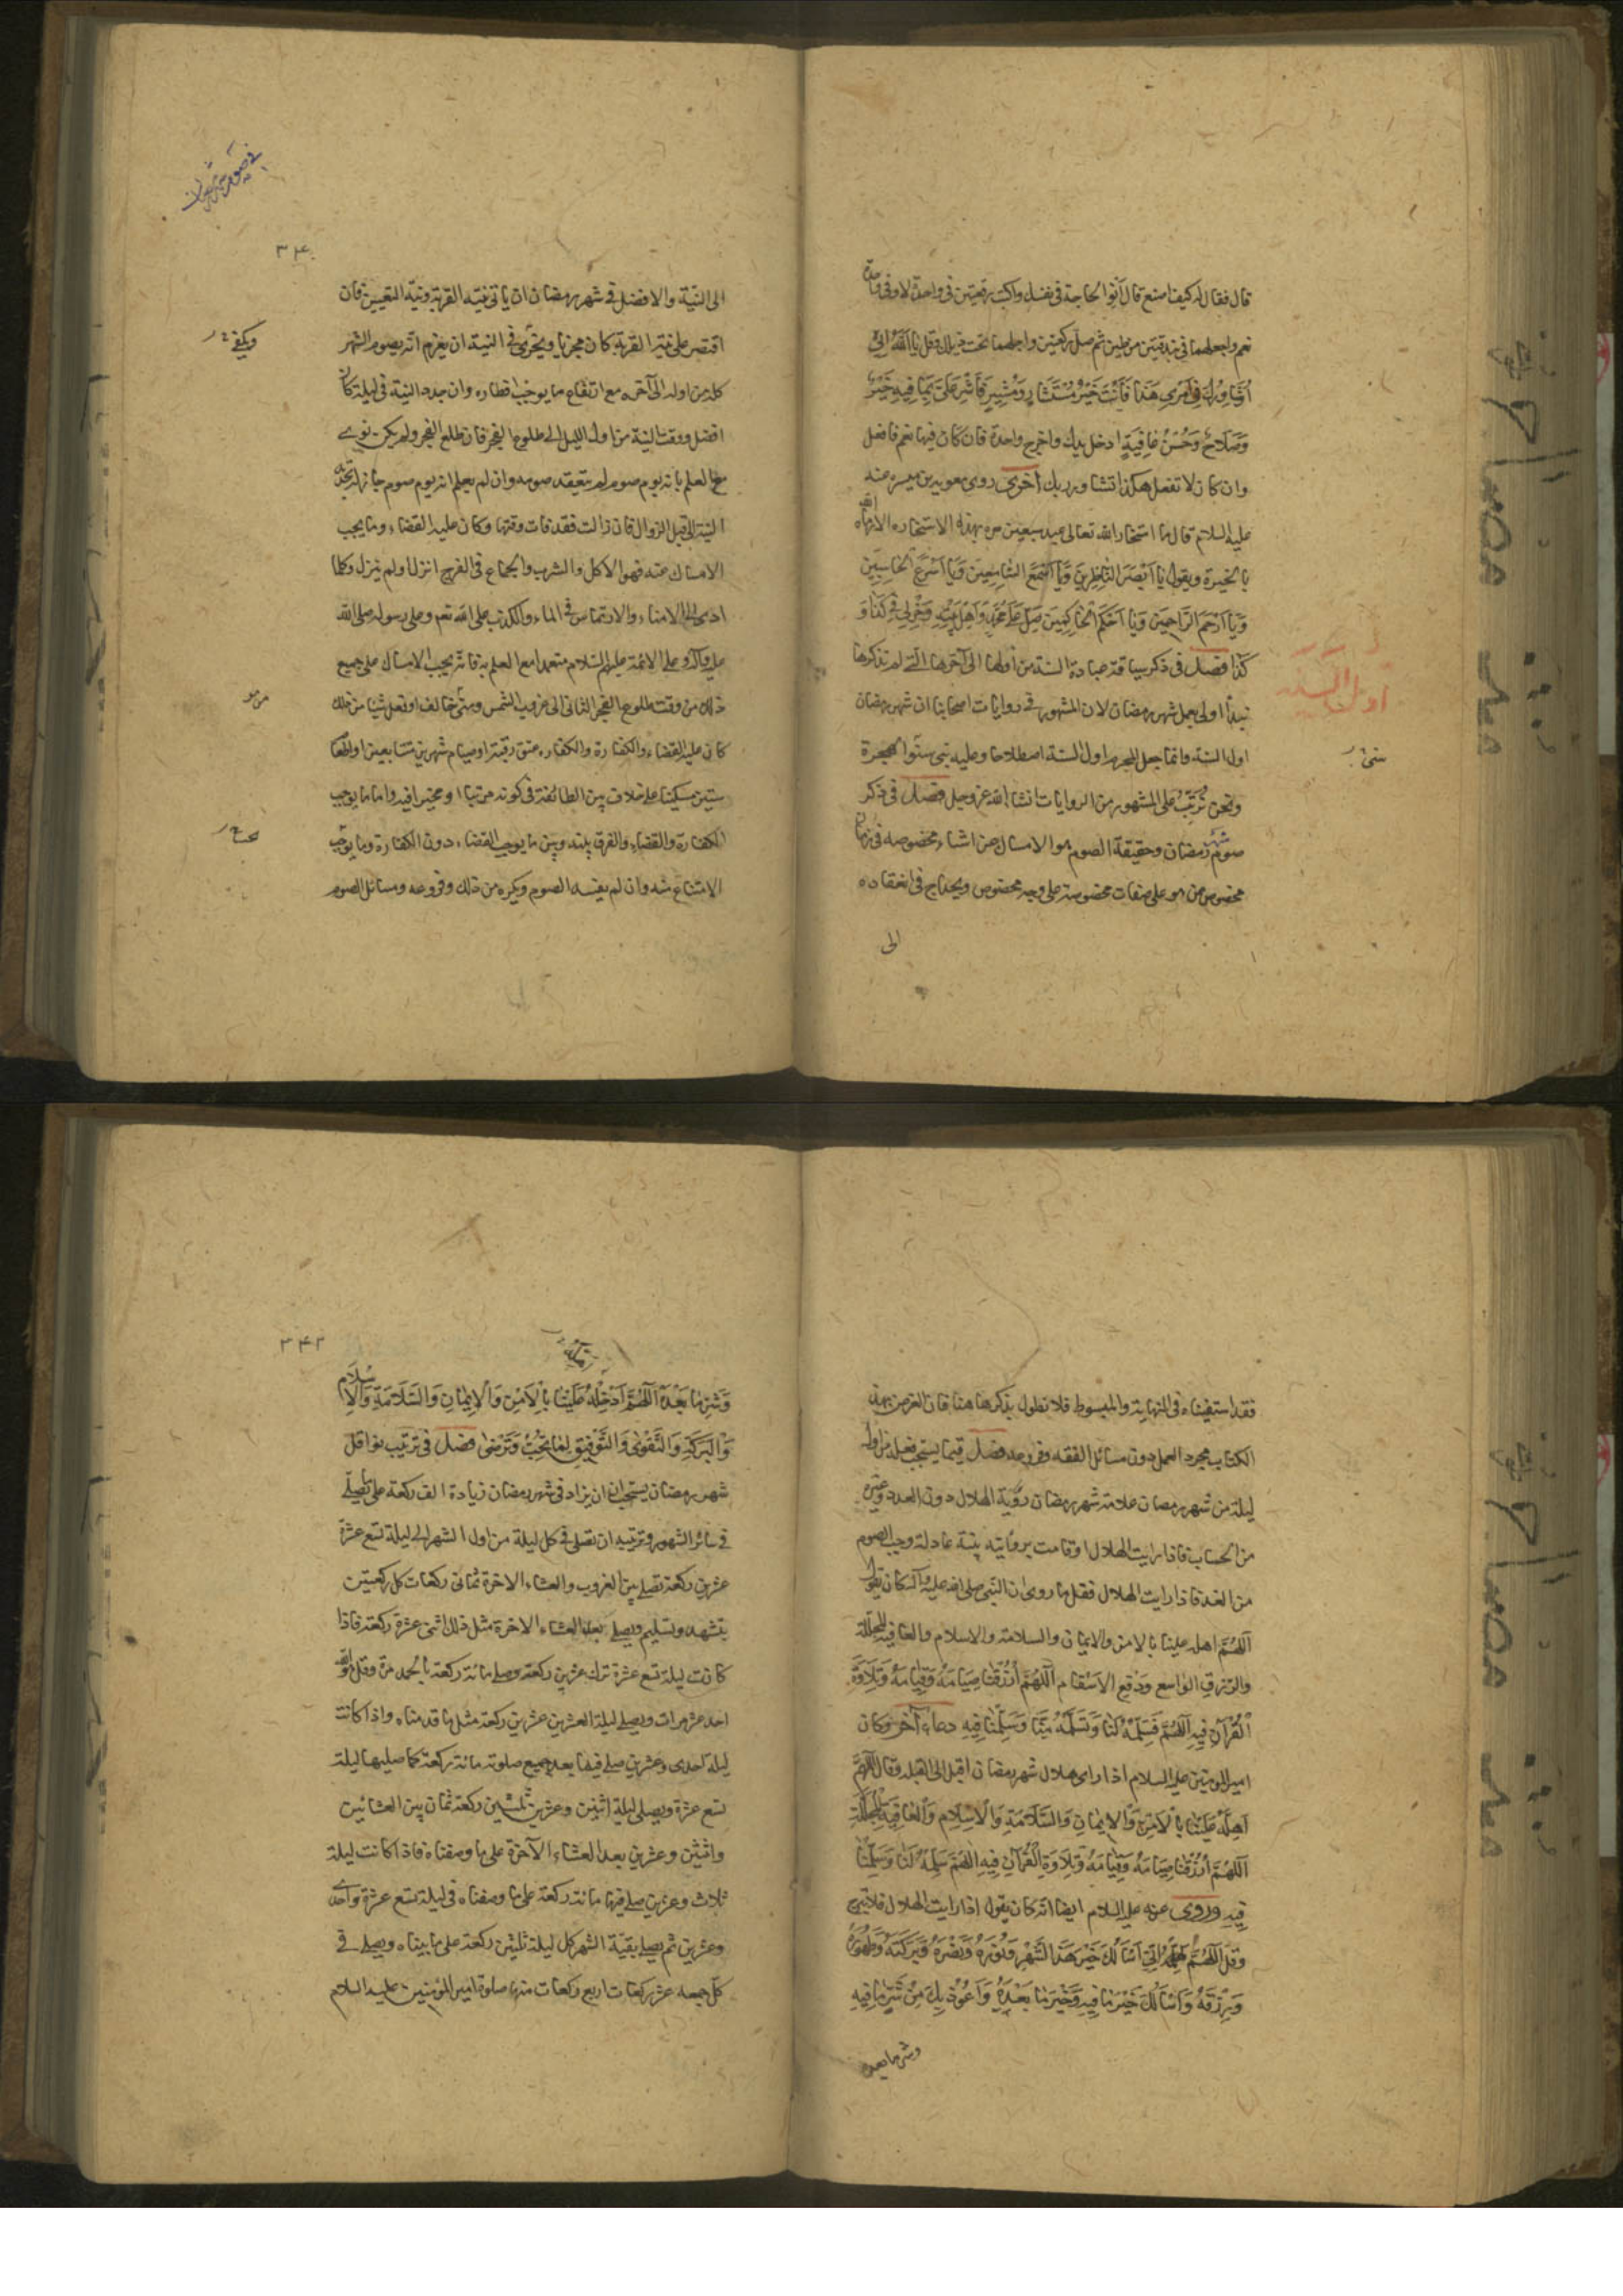 قال فقال له كيف اصنع قال انو الحاجة في نفسك واكتب رقعتين في واحدة لا وفي واحدة
نعم واجعلهما في بندقتين من طين ثم صل ركعتين واجعلهما تحت ذيلك وقل يا اَللّٰهُ اِنّي
اُشَاوِرُكَ فِي اَمْرِي هَذَا فَاَنْتَ خَيْرُ مُسْتَشَارٍ وَمُشِيرٍ فَاَشِرْ عَلَيَّ بِمَا فِيهِ خَيْرٌ
وَصَلَاحٌ وَحُسْنُ عَاقِبَةٍ ادخل يدك واخرج واحدة فان كان فيها نعم فافعل
وان كان لا تفعل هكذا تشاور ربك اخرى روى معوية بن ميسره عنه
عليه السلام قال ما استخار الله تعالى عبد سبعين مره بهذه الاستخاره الا رماه الله
بالخيرة ويقول يَا اَبْصَرَ النَّاظِرِينَ وَيَا اَسْمَعَ السَّامِعِينَ وَيَا اَسْرَعَ الْحَاسِبِينَ
وَيَا اَرْحَمَ الرَّاحِمِينَ وَيَا اَحْكَمَ الْحَاكِمِينَ صَلِّ عَلَى مُحَمَّدٍ وَاَهْلِ بَيْتِهِ وَخِرْ لِي فِي كَذَا وَ
كَذَا فصل في ذكر سياقة عبادة السنة من اولها الى آخرها التي لم نذكرها
نبدأ اولا بعمل شهر رمضان لان المشهور في روايات اصحابنا ان شهر رمضان
اول السنة وانما جعل المحرم اول السنة اصطلاحا وعليه بني سنوا الهجرة
ونحن نُرَتِّبُ على المشهور من الروايات انشا الله عز وجل فصل في ذكر
صوم شهر رمضان وحقيقة الصوم هو الامساك عن اشياء مخصوصه في زمان
مخصوص ممن هو على صفات مخصوصة على وجه مخصوص ويحتاج في انعقاده
الى
اول السنه
سني
٣٤٠
الى النية والافضل في شهر رمضان ان ياتي بنية القربة ونية التعيين فان
اقتصر على نية القربة كان مجزيا ويجزي في النية ان يعزم انه يصوم الشهر
كله من اوله الى آخره مع ارتفاع ما يوجب افطاره وان جدد النية في ليلة كان
افضل ووقت النية من اول الليل الى طلوع الفجر فان طلع الفجر ولم يكن نوى
مع العلم بانه يوم صوم لم ينعقد صومه وان لم يعلم انه يوم صوم جاز له تجديد
النية الى قبل الزوال فان زالت فقد فات وقتها وكان عليه القضاء وما يجب
الامساك عنه فهو الاكل والشرب والجماع في الفرج انزل او لم ينزل وكلما
ادى الى الامناء والارتماس في الماء والكذب على الله تعم وعلى رسوله صلى الله
عليه وآله وعلى الائمة عليهم السلام متعمدا مع العلم به فانه يجب الامساك على جميع
ذلك من وقت طلوع الفجر الثاني الى غروب الشمس ومتى خالف او فعل شيئا من ذلك
كان عليه القضاء والكفارة والكفاره عتق رقبة او صيام شهرين متتابعين او اطعام
ستين مسكينا على خلاف بين الطائفة في كونه مرتبا او مخير افيه واما ما يوجب
الكفارة والقضاء والفرق بينه وبين ما يوجب القضاء دون الكفارة وما يوجب
الامتناع منه وان لم يفسد الصوم ويكره من ذلك وفروعه ومسائل الصوم
ويكفي
من هو
فقد استوفيناه في النهاية والمبسوط فلا نطول بذكرها هنا فان الغرض بهذا
الكتاب مجرد العمل دون مسائل الفقه وفروعه فصل فيما يستحب فعله في اول
ليلة من شهر رمضان علامة شهر رمضان رؤية الهلال دون العدد وغيره
من الحساب فاذا رايت الهلال او قامت برؤيته بينة عادلة وجب الصوم
من الغد فاذا رايت الهلال فقل ما روى ان النبي صلى الله عليه وآله كان يقول
اَللّٰهُمَّ اهله علينا بالامن والايمان والسلامة والاسلام والعافية المجللة
والرزق الواسع وَدَفْعِ الْاَسْقَامِ اَللّٰهُمَّ ارْزُقْنَا صِيَامَهُ وَقِيَامَهُ وَتِلَاوَةَ
الْقُرْآنِ فِيهِ اَللّٰهُمَّ سَلِّمْهُ لَنَا وَتَسَلَّمْهُ مِنَّا وَسَلِّمْنَا فِيهِ دعاء آخر وكان
امير المومنين عليه السلام اذا راى هلال شهر رمضان اقبل الى القبلة وقال اللّٰهُمَّ
اَهِلَّهُ عَلَيْنَا بِالْاَمْنِ وَالْاِيمَانِ وَالسَّلَامَةِ وَالْاِسْلَامِ وَالْعَافِيَةِ الْمُجَلَّلَةِ
اَللّٰهُمَّ ارْزُقْنَا صِيَامَهُ وَقِيَامَهُ وَتِلَاوَةَ الْقُرْآنِ فِيهِ اللّٰهُمَّ سَلِّمْهُ لَنَا وَسَلِّمْنَا
فِيهِ وروى عنه عليه السلام ايضا انه كان يقول اذا رايت الهلال فلا تبرح
وقل اَللّٰهُمَّ اِنِّي اَسْأَلُكَ خَيْرَ هَذَا الشَّهْرِ وَنُورَهُ وَنَصْرَهُ وَبَرَكَتَهُ وَطَهُورَهُ
وَرِزْقَهُ وَاَسْأَلُكَ خَيْرَ مَا فِيهِ وَخَيْرَ مَا بَعْدَهُ وَاَعُوذُ بِكَ مِنْ شَرِّ مَا فِيهِ
وشر ما بعده
٣٤٢
وَشَرِّ مَا بَعْدَهُ اَللّٰهُمَّ اَدْخِلْهُ عَلَيْنَا بِالْاَمْنِ وَالْاِيمَانِ وَالسَّلَامَةِ وَالْاِسْلَامِ
وَالْبَرَكَةِ وَالتَّقْوٰى وَالتَّوْفِيقِ لِمَا تُحِبُّ وَتَرْضٰى فصل في ترتيب نوافل
شهر رمضان يستحب ان يزاد في شهر رمضان زيادة الف ركعة على ما يصلى
في سائر الشهور وترتيبه ان تصلي في كل ليلة من اول الشهر الى ليلة تسع عشرة
عشرين ركعة تصلي بين الغروب والعشاء الاخرة ثماني ركعات كل ركعتين
بتشهد وتسليم ويصلي بعد العشاء الاخرة مثل ذلك اثنى عشرة ركعة فاذا
كانت ليلة تسع عشرة ترك عشرين ركعة وصلى مائة ركعة بالحمد مرة وقل هو الله
احد عشر مرات ويصلي ليلة العشرين عشرين ركعة مثل ما قدمناه واذا كانت
ليلة احدى وعشرين صلى فيها بعد جميع صلوته مائة ركعة كما صليها ليلة
تسع عشرة ويصلي ليلة اثنين وعشرين ثلثين ركعة ثمان بين العشائين
واثنتين وعشرين بعد العشاء الآخرة على ما وصفناه فاذا كانت ليلة
ثلاث وعشرين صلى فيها مائة ركعة على ما وصفناه في ليلة تسع عشرة واحدى
وعشرين ثم يصلي بقية الشهر كل ليلة ثلثين ركعة على ما بيناه ويصلي في
كل جمعه عشر ركعات اربع ركعات منها صلوة امير المؤمنين عليه السلام